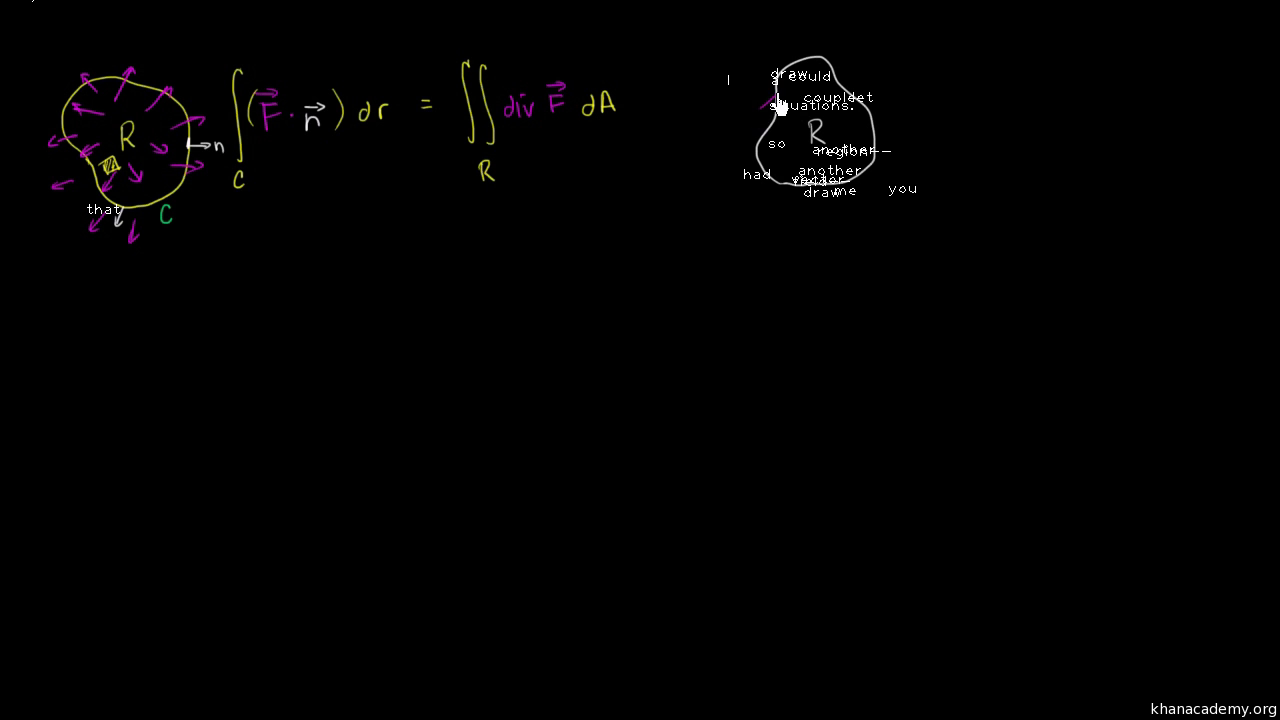 R
n
C
that
∫_C (F⃗ · n⃗) dr = ∬_R div F⃗ dA
I
draw
could
a
couple
situations.
R
so
another
region--
another
had
vector
field
draw
me
you
khanacademy.org